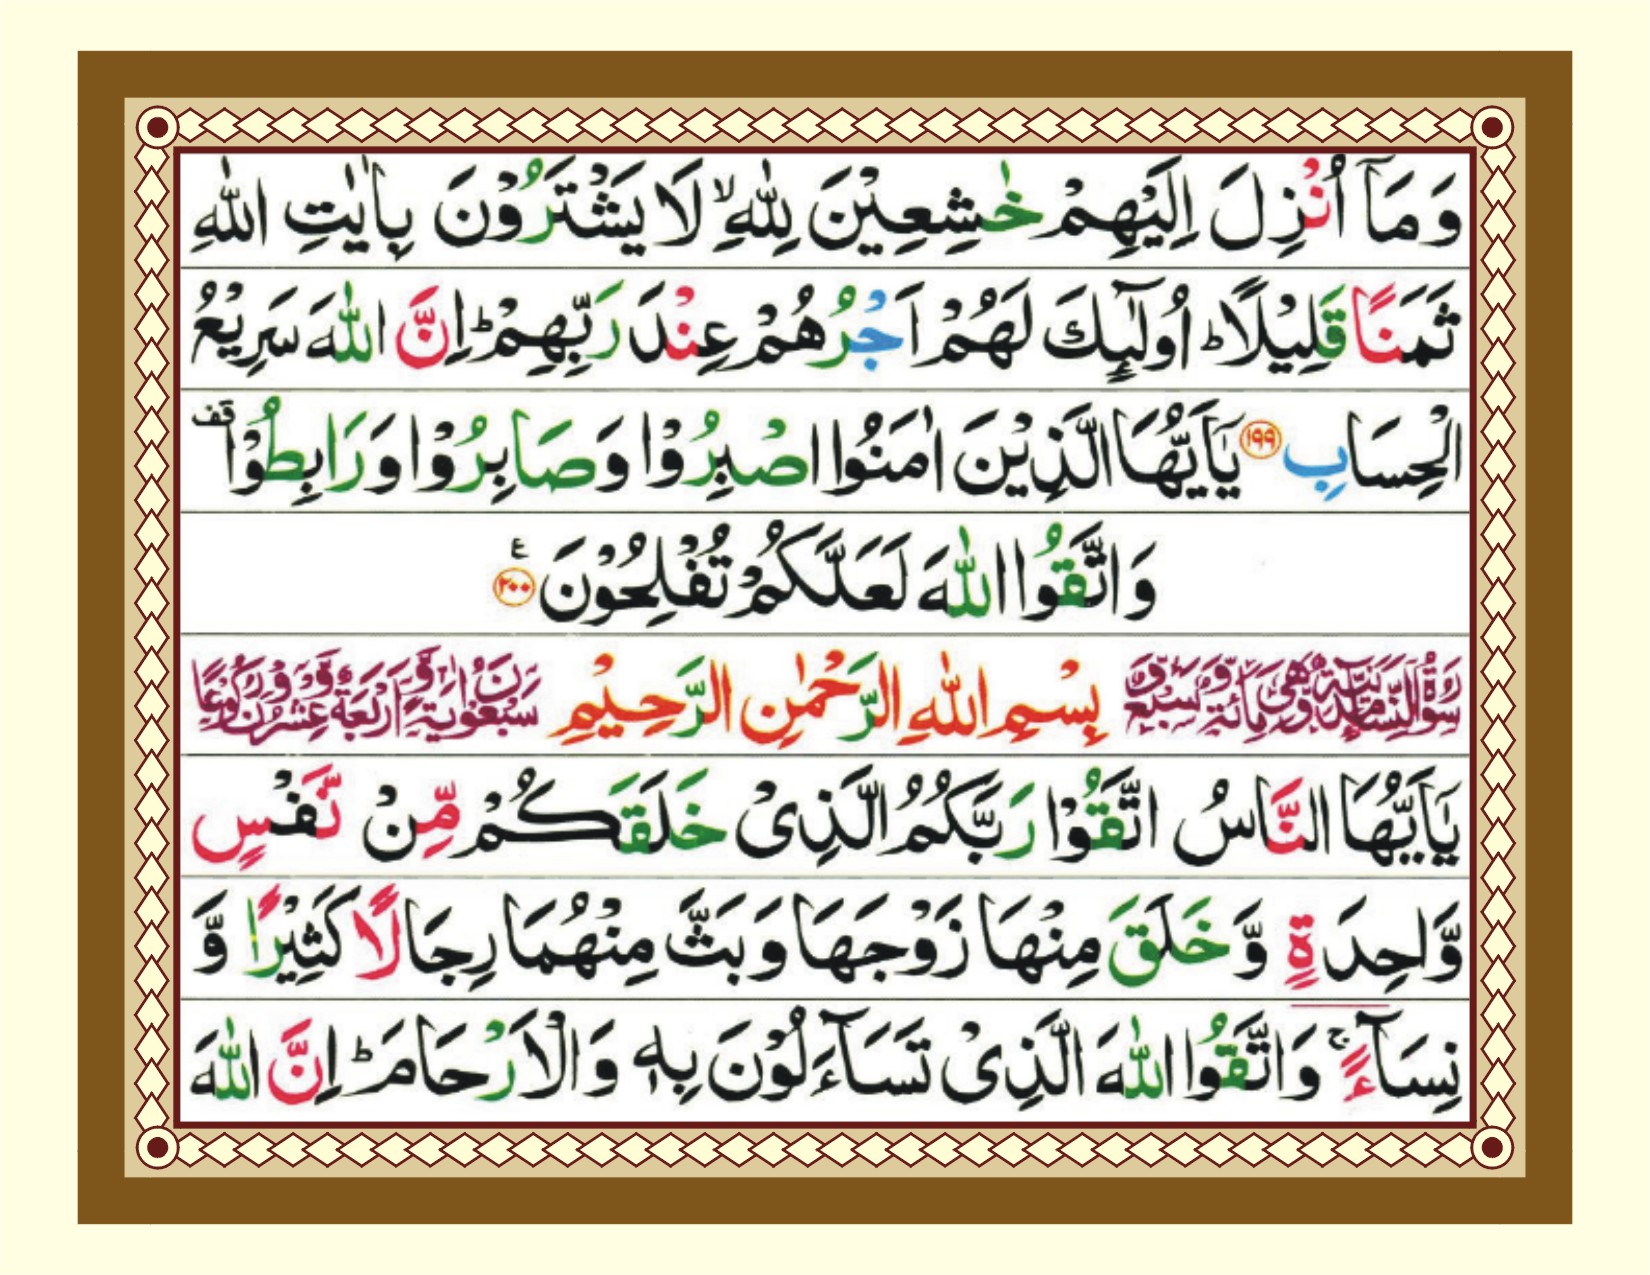 وَمَآ اُنْزِلَ اِلَيْهِمْ خٰشِعِيْنَ لِلّٰهِ ۙ لَا يَشْتَرُوْنَ بِاٰيٰتِ اللّٰهِ
ثَمَنًا قَلِيْلًا ؕ اُولٰٓئِكَ لَهُمْ اَجْرُهُمْ عِنْدَ رَبِّهِمْ ؕ اِنَّ اللّٰهَ سَرِيْعُ
الْحِسَابِ ۱۹۹ يٰۤاَيُّهَا الَّذِيْنَ اٰمَنُوا اصْبِرُوْا وَصَابِرُوْا وَرَابِطُوْا قف
وَاتَّقُوا اللّٰهَ لَعَلَّكُمْ تُفْلِحُوْنَ ۲۰۰ ع
بِسْمِ اللّٰهِ الرَّحْمٰنِ الرَّحِيْمِ
يٰۤاَيُّهَا النَّاسُ اتَّقُوْا رَبَّكُمُ الَّذِىْ خَلَقَكُمْ مِّنْ نَّفْسٍ
وَّاحِدَةٍ وَّخَلَقَ مِنْهَا زَوْجَهَا وَبَثَّ مِنْهُمَا رِجَالًا كَثِيْرًا وَّ
نِسَآءً ۚ وَاتَّقُوا اللّٰهَ الَّذِىْ تَسَآءَلُوْنَ بِهٖ وَالْاَرْحَامَ ؕ اِنَّ اللّٰهَ